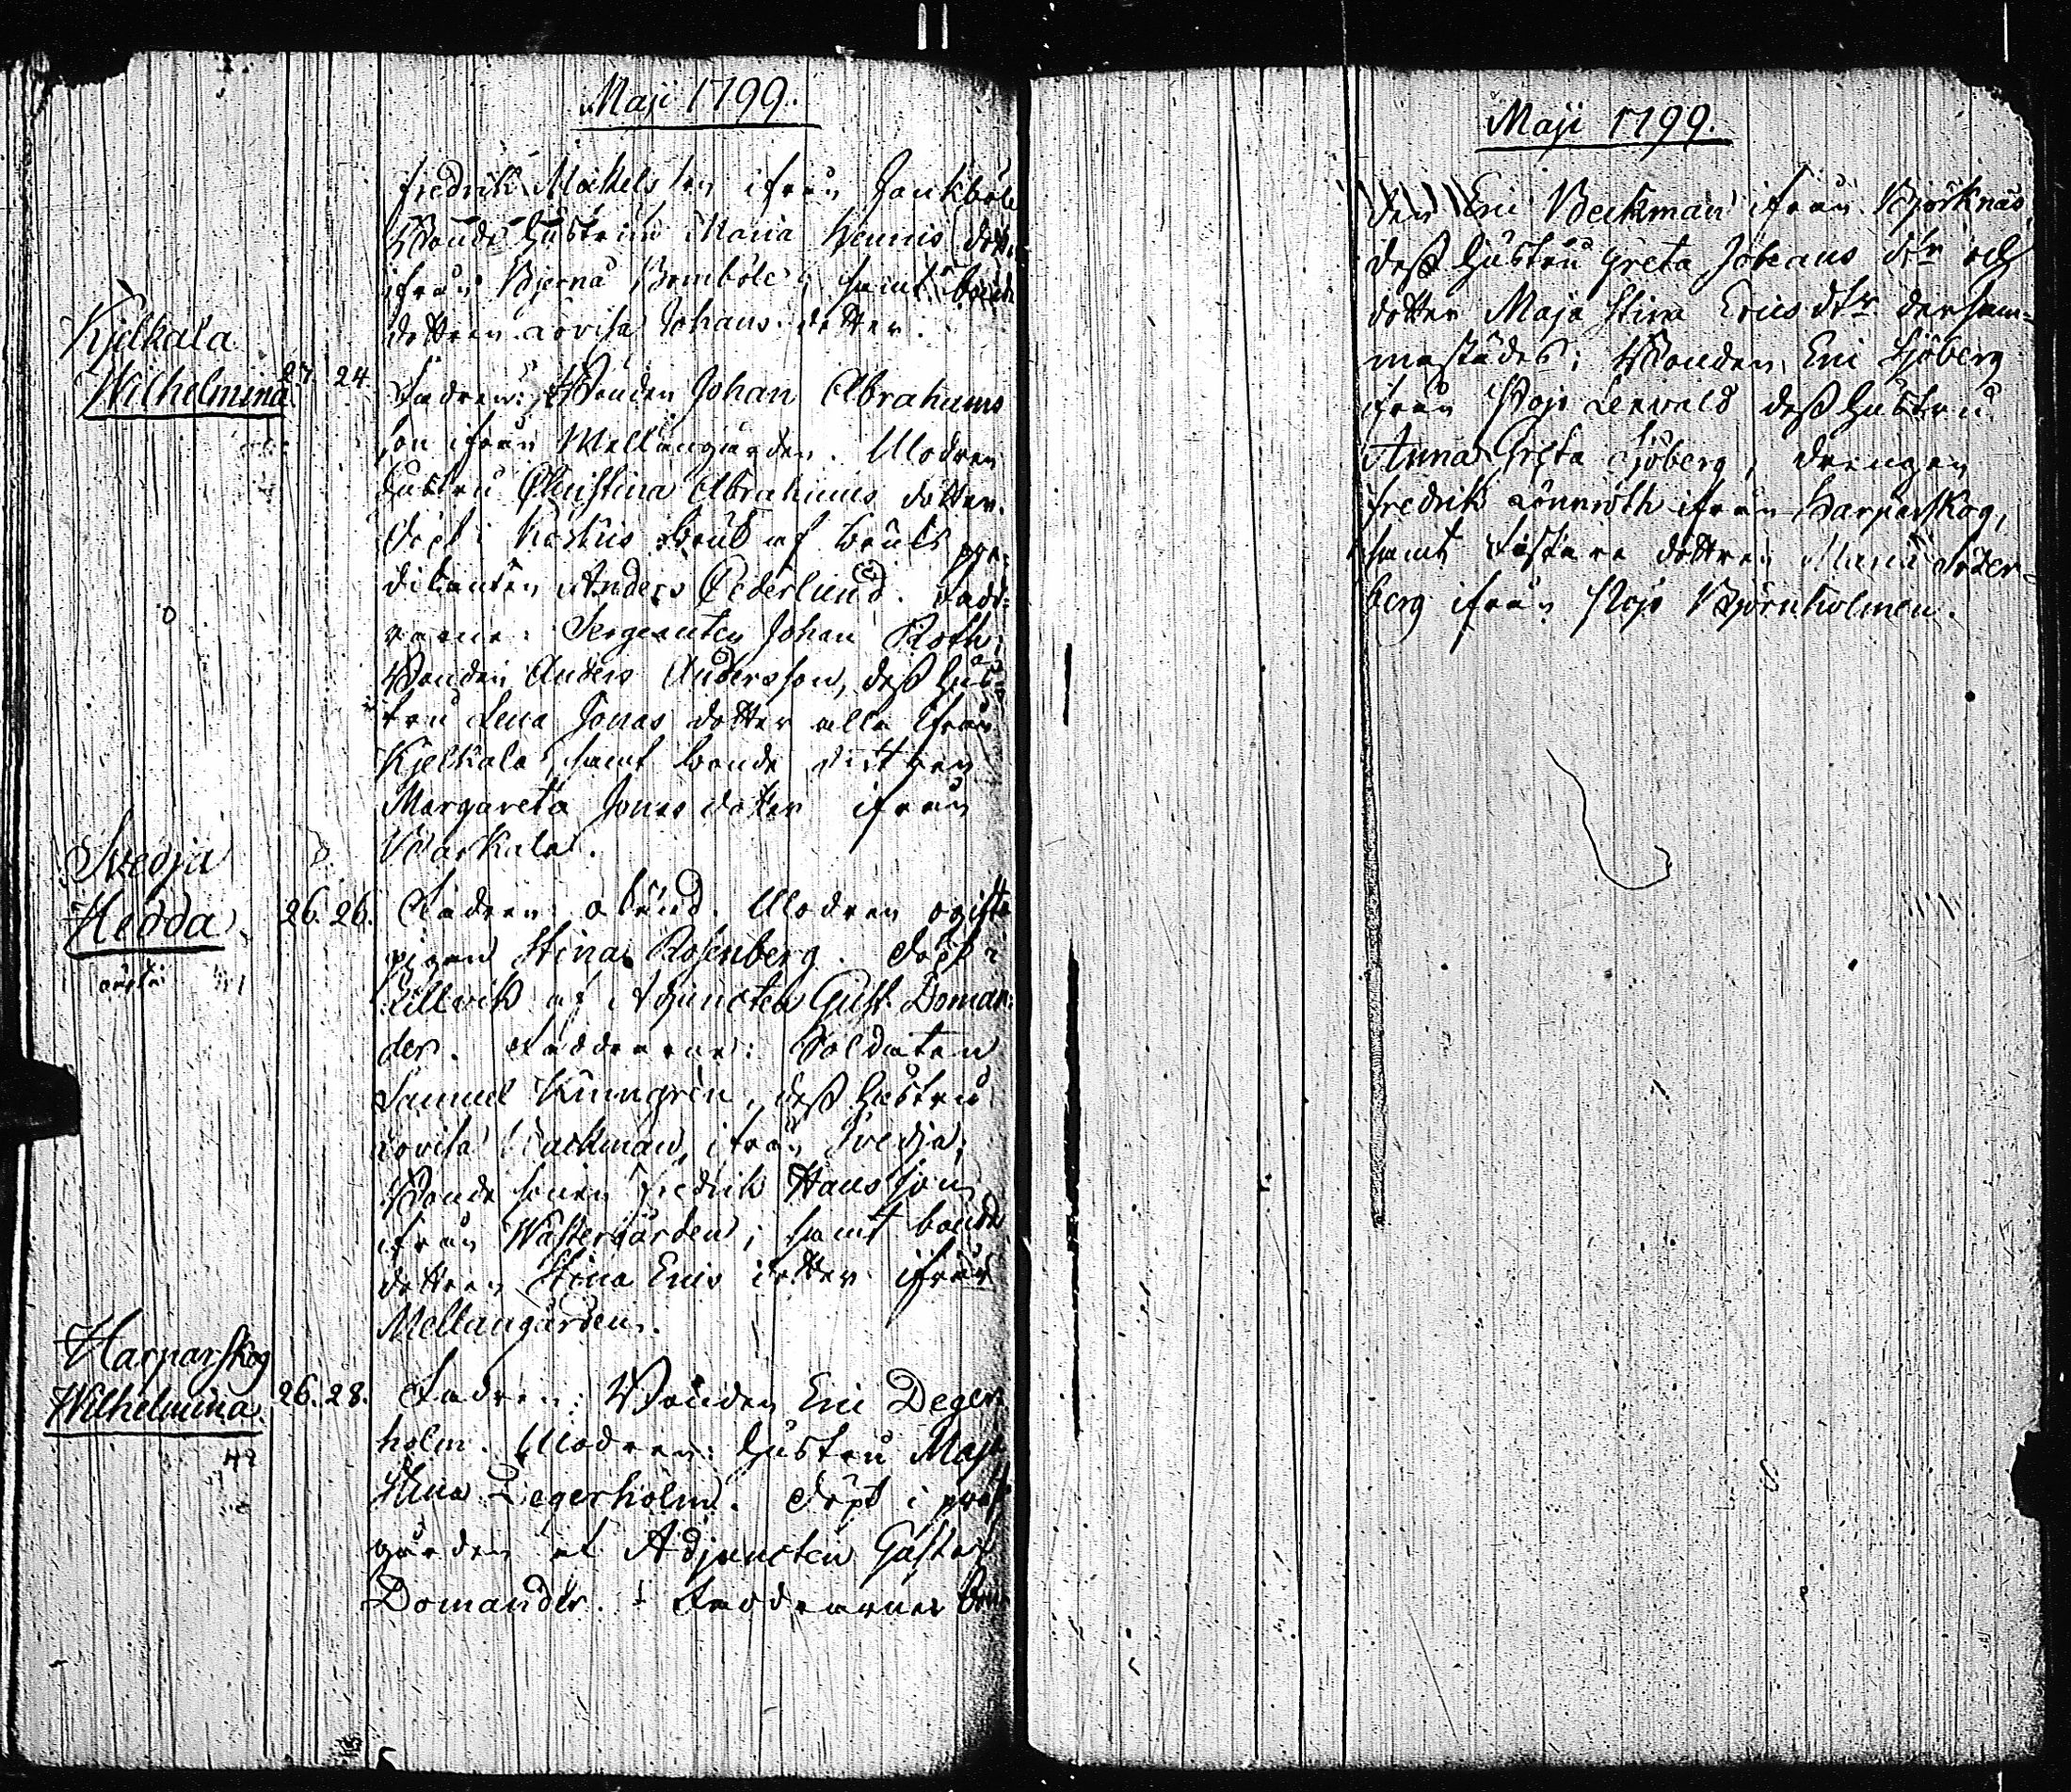 Maji 1799.
fredrik Mickelsson ifrån Jonkböle
Bonde Hustrun Maria Hennis dott.
ifrån Bjerna Bromböle; samt bonde
dottren Lovisa Johans dotter.
Kjelkala
Wilhelmina 24. Fadren: Bonden Johan Abrahams
son ifrån Mellangården. Modren
hustru Christina Abrahams dotter.
Döpt i bruk af bruks pre-
dikanten Anders Cederlund. Fadd-
rarne: Sergeanten Johan Roth;
Bonden Anders Andersson, deß hus-
tru Lena Jonas dotter alla ifrån
Kjelkala, samt bonde dottren
Margareta Jonas dotter ifrån
Svedja
Hedda. 26. 26. Fadren okänd. Modren ogifta
pigan Stina Rosenberg. Döpt i
Lillvik af Adjuncten Gust. Doman-
der. Faddrarne: Soldaten
Samuel deß hustru
Lovisa Wackman, ifrån Svedja;
Bonde sonen Fredrik Hansson
ifrån Wästergården; samt bonde
dottren Stina Eriks dotter ifrån
Mellangården.
Harparskog
Wilhelmina. 26. 28. Fadren: Bonden Eric Deger-
holm. Modren: hustru Maja
Stina Degerholm. Döpt i prest
gården af Adjuncten Gustaf
Domander. Faddrarne Bon-
Maji 1799.
den Eric Beckman ifrån Björknäs,
deß hustru Greta Johans dtr och
dotter Maja Stina Erics dtr dersam-
mastädes; Bonden Eric Sjöberg
ifrån Pojo Lerwald deß hustru
Anna Greta Sjöberg, drengen
fredrik Lönnroth ifrån Harparskog,
samt dottren Maria Söder-
berg ifrån Pojo Björnholmen.